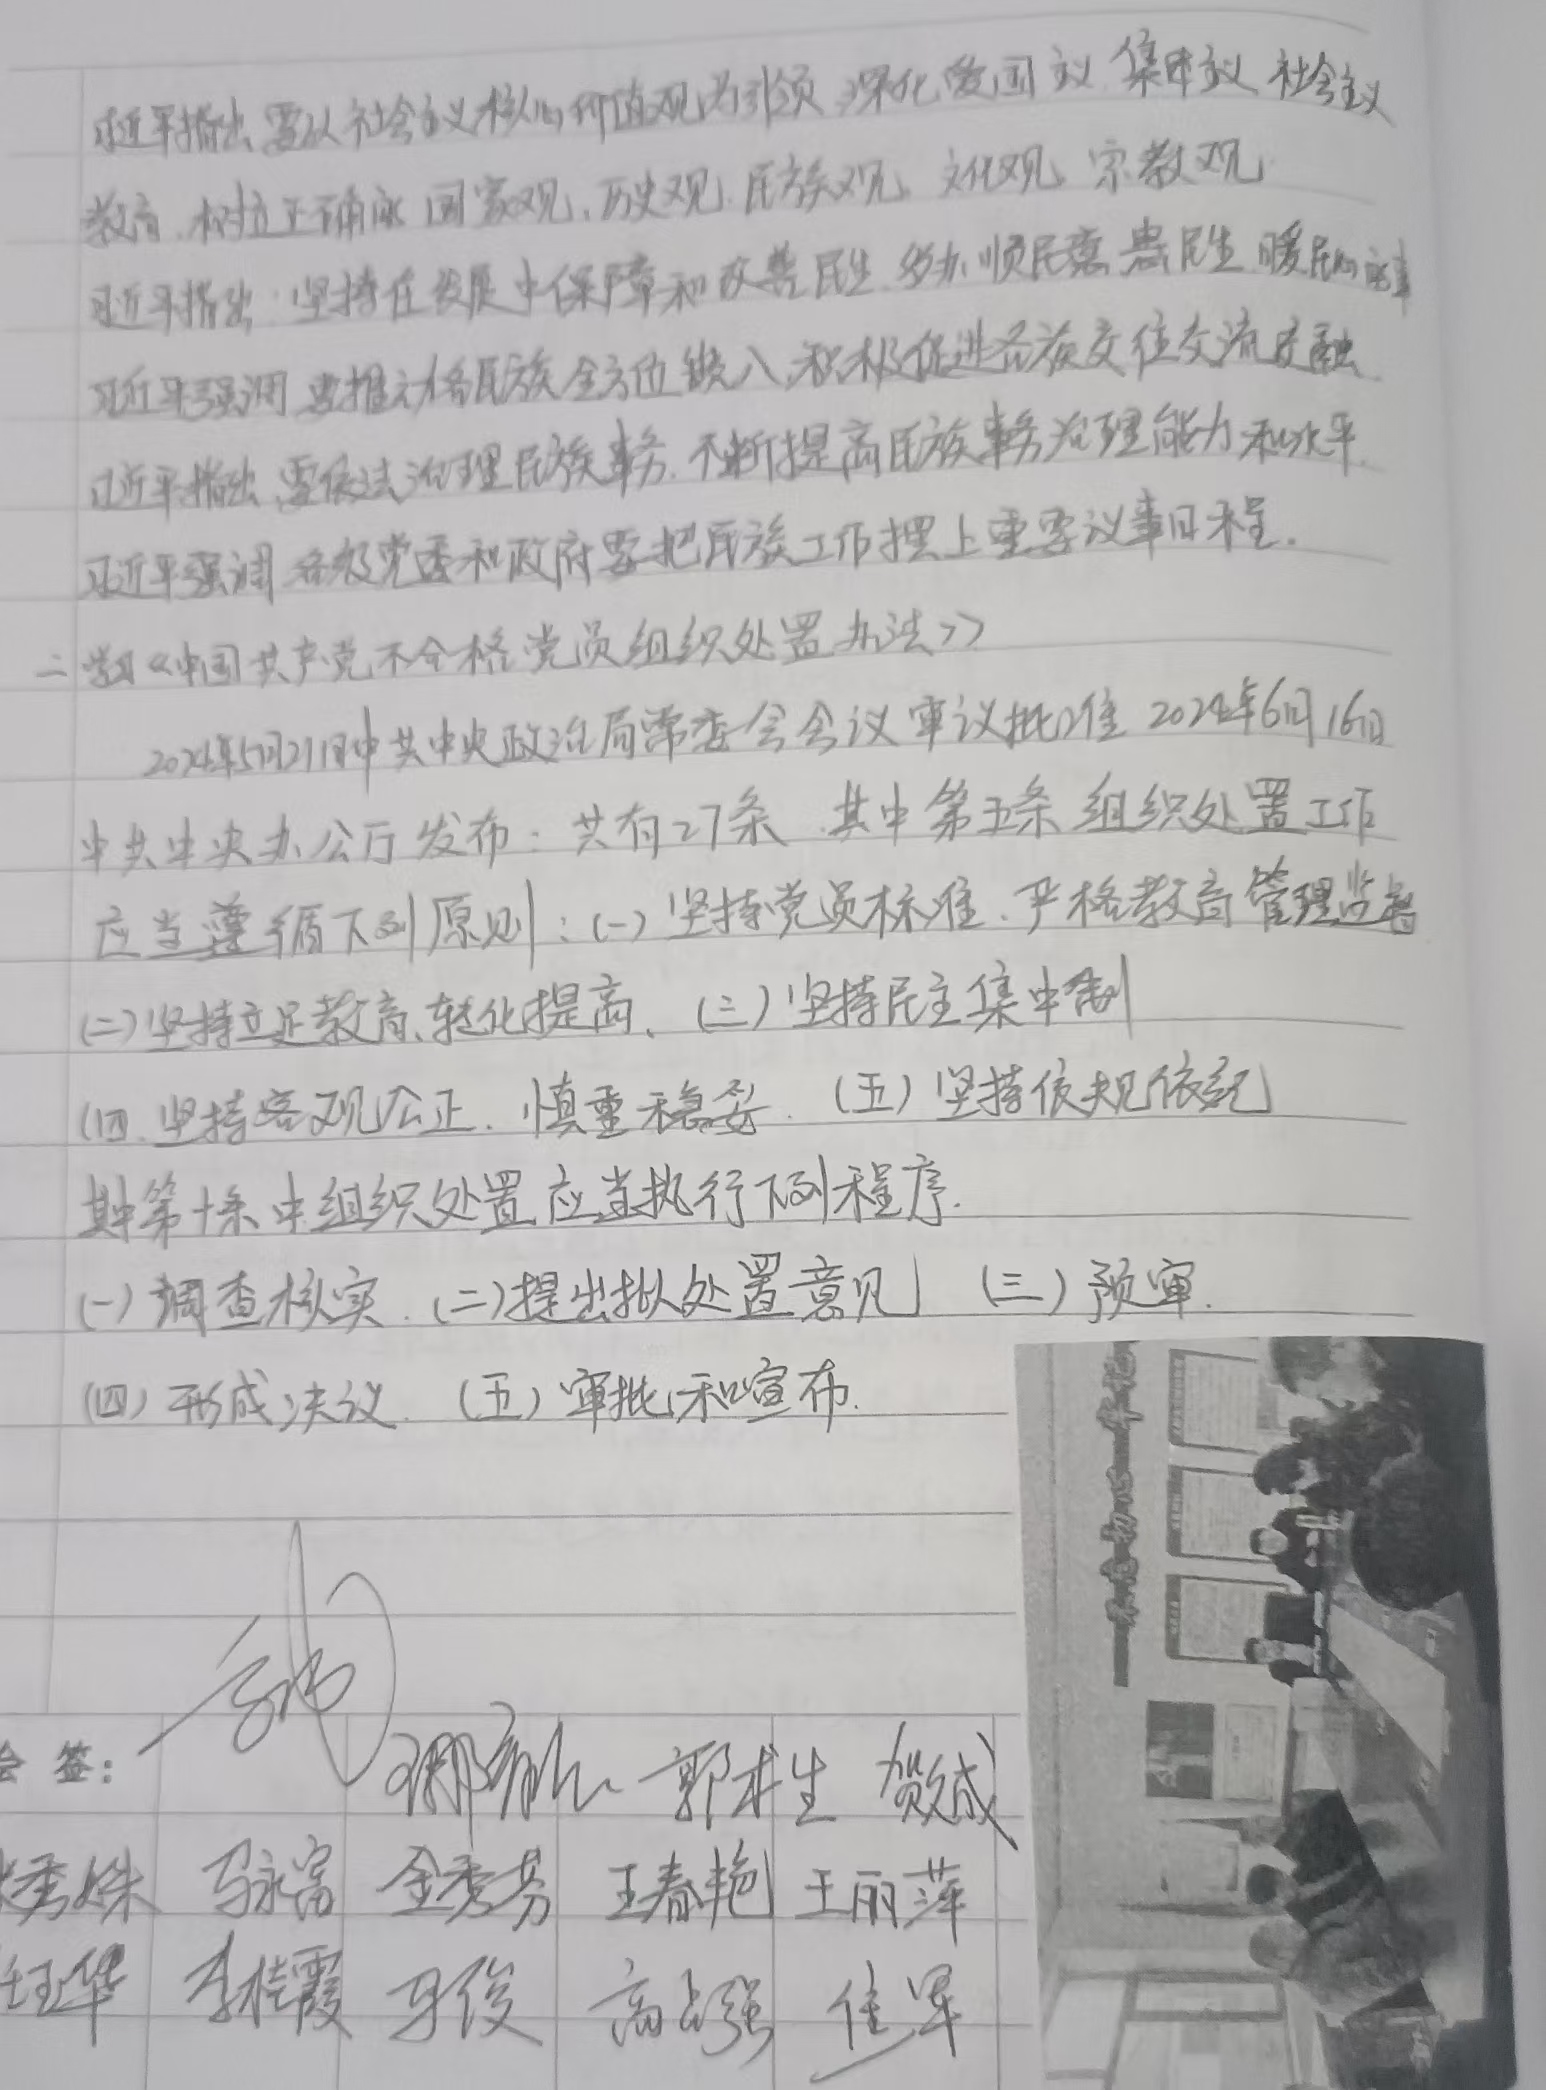 习近平指出 要以社会主义核心价值观为引领,深化爱国主义、集体主义、社会主义
教育、树立正确的国家观、历史观、民族观、文化观、宗教观.
习近平指出:坚持在发展中保障和改善民生.多办顺民意 惠民生 暖民心的事
习近平强调 要推动各民族全方位嵌入,积极促进各族交往交流交融
习近平指出,要依法治理民族事务.不断提高民族事务治理能力和水平.
习近平强调 各级党委和政府要把民族工作摆上重要议事日程.
二 学习《中国共产党不合格党员组织处置办法》
2024年5月21日中共中央政治局常委会会议审议批准 2024年6月16日
中共中央办公厅发布:共有27条.其中第五条 组织处置工作
应当遵循下列原则:(一)坚持党员标准、严格教育管理监督
(二)坚持立足教育、转化提高、(三)坚持民主集中制
(四.坚持客观公正.慎重稳妥.(五)坚持依规依纪
其中第十条中组织处置应当执行下列程序.
(一)调查核实.(二)提出拟处置意见 (三)预审.
(四)形成决议.(五)审批和宣布.
不忘初心 牢记
会 签:
郭术生 贺成
秀姝 马永富 金秀芬 王春艳 王丽萍
任玉华 李桂霞 马俊 高占强 佳军